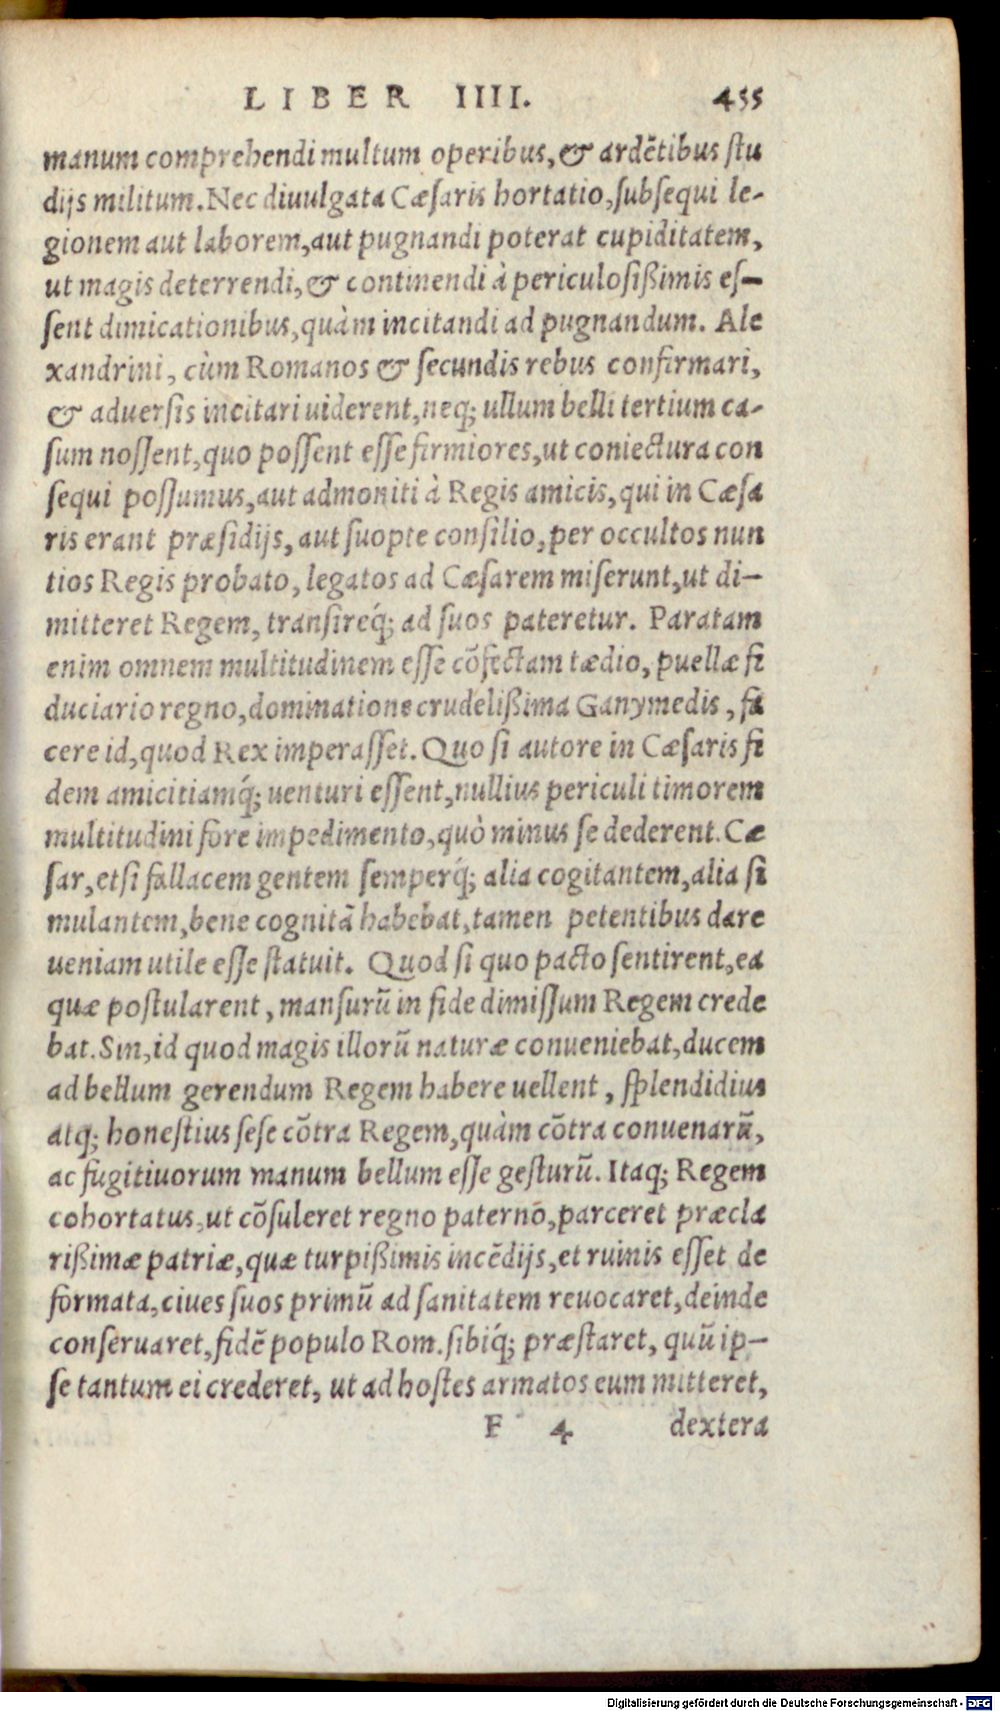 LIBER IIII. 455
manum comprehendi multum operibus, & ardẽtibus ſtu
dijs militum. Nec diuulgata Cæſaris hortatio, ſubſequi le-
gionem aut laborem, aut pugnandi poterat cupiditatem,
ut magis deterrendi, & continendi à periculoſißimis eſ-
ſent dimicationibus, quàm incitandi ad pugnandum. Ale
xandrini, cùm Romanos & ſecundis rebus confirmari,
& aduerſis incitari uiderent, neq; ullum belli tertium ca-
ſum noſſent, quo poſſent eſſe firmiores, ut coniectura con
ſequi poſſumus, aut admoniti à Regis amicis, qui in Cæſa
ris erant præſidijs, aut ſuopte conſilio, per occultos nun
tios Regis probato, legatos ad Cæſarem miſerunt, ut di-
mitteret Regem, tranſireq́; ad ſuos pateretur. Paratam
enim omnem multitudinem eſſe cõfectam tædio, puellæ fi
duciario regno, dominatione crudelißima Ganymedis, fa
cere id, quod Rex imperaſſet. Quo ſi autore in Cæſaris fi
dem amicitiamq́; uenturi eſſent, nullius periculi timorem
multitudini fore impedimento, quò minus ſe dederent. Cæ
ſar, etſi fallacem gentem ſemperq́; alia cogitantem, alia ſi
mulantem, bene cognitã habebat, tamen petentibus dare
ueniam utile eſſe ſtatuit. Quod ſi quo pacto ſentirent, ea
quæ poſtularent, manſurũ in fide dimiſſum Regem crede
bat. Sin, id quod magis illorũ naturæ conueniebat, ducem
ad bellum gerendum Regem habere uellent, ſplendidius
atq; honeſtius ſeſe cõtra Regem, quàm cõtra conuenarũ,
ac fugitiuorum manum bellum eſſe geſturũ. Itaq; Regem
cohortatus, ut cõſuleret regno paterno, parceret præcla
rißimæ patriæ, quæ turpißimis incẽdijs, et ruinis eſſet de
formata, ciues ſuos primũ ad ſanitatem reuocaret, deinde
conſeruaret, fidẽ populo Rom. ſibiq́; præſtaret, quũ ip-
ſe tantum ei crederet, ut ad hoſtes armatos eum mitteret,
F 4 dextera
Digitalisierung gefördert durch die Deutsche Forschungsgemeinschaft - DFG